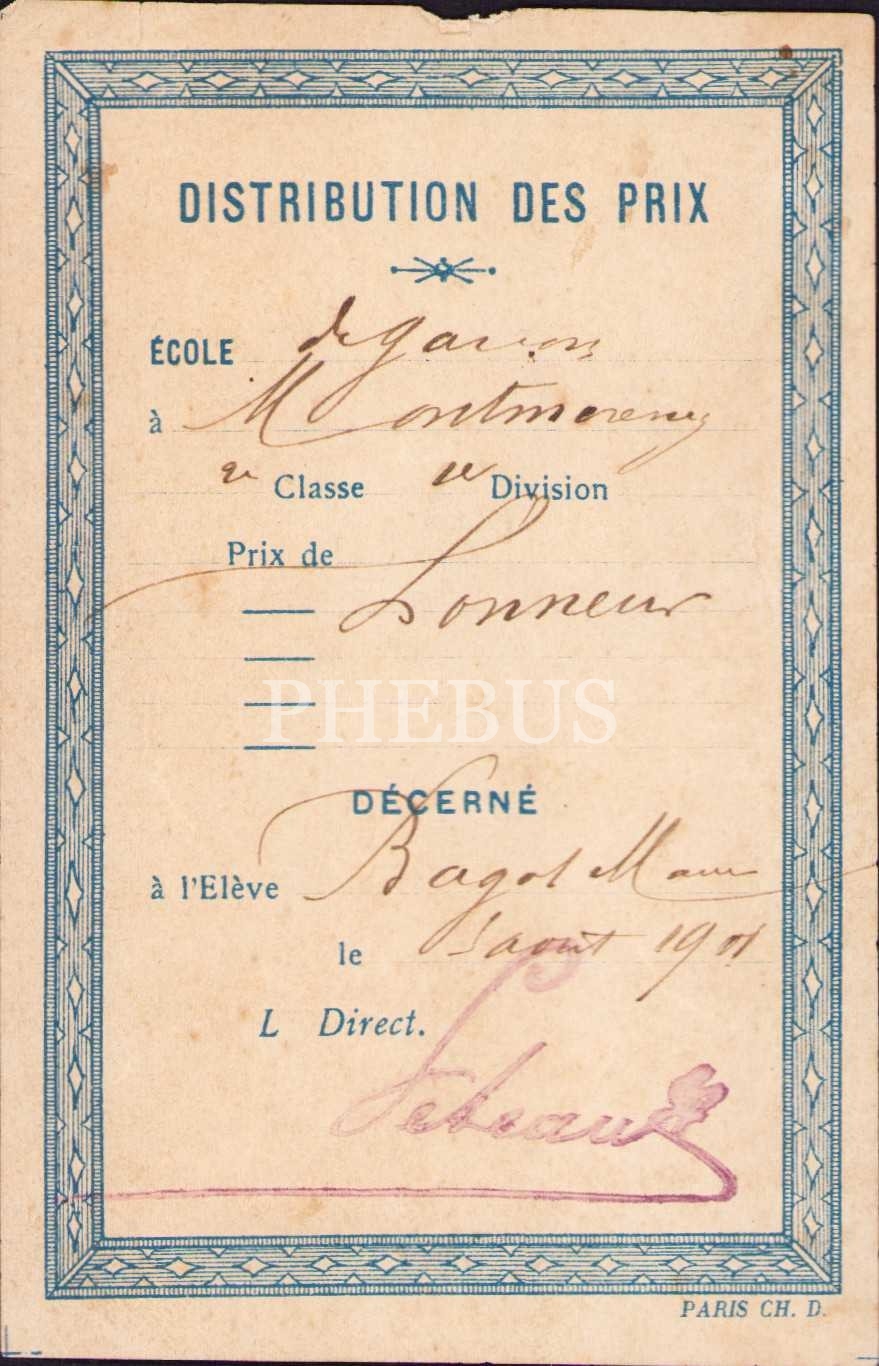 DISTRIBUTION DES PRIX
ÉCOLE de garçons
à Montmorency
2e Classe 1e Division
Prix de
Honneur
PHEBUS
DÉCERNÉ
à l'Elève Bagot
le août 1901
L Direct.
PARIS CH. D.